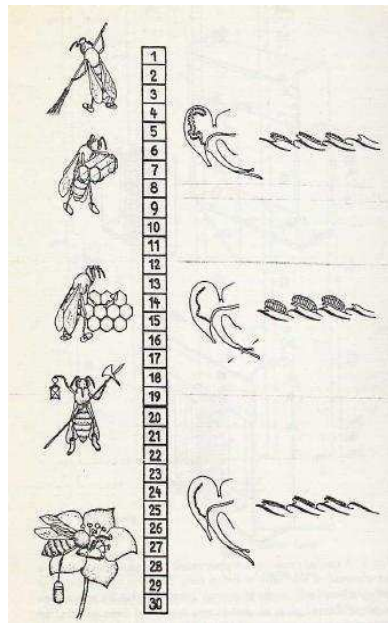 1
2
3
4
5
6
7
8
9
10
11
12
13
14
15
16
17
18
19
20
21
22
23
24
25
26
27
28
29
30